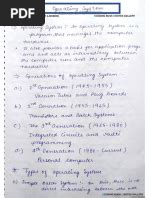 Operating System
① Operating System :- An Operating System is a
program that manages the computer
hardware.
It also provides a basis for application progra
ms and acts as an intermediary between
the computer user and the computer
hardware.
→ Generations of Operating System
a) 1st Generation (1945-1955)
Vacuum Tubes and Plug Boards
b) 2nd Generation (1955-1965)
Transistors and Batch Systems
c) 3rd Generation (1965-1980)
Integrated Circuits and Multi
programming
d) 4th Generation (1980-Current)
Personal Computer
→ Types of Operating System